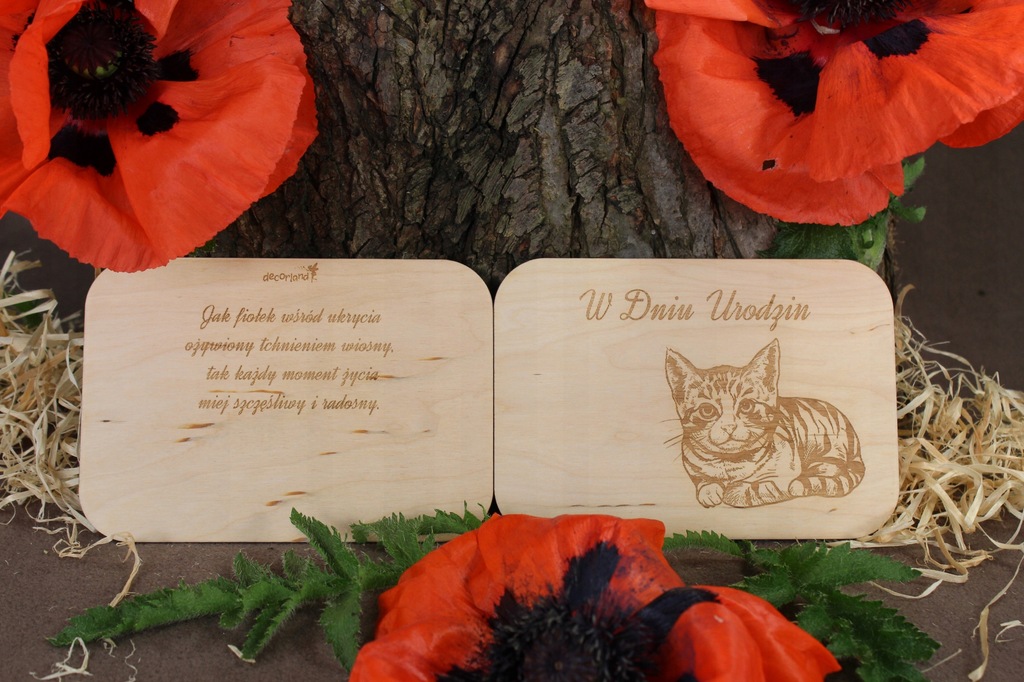 decorland
Jak fiołek wśród ukrycia
ożywiony tchnieniem wiosny,
tak każdy moment życia
miej szczęśliwy i radosny.
W Dniu Urodzin